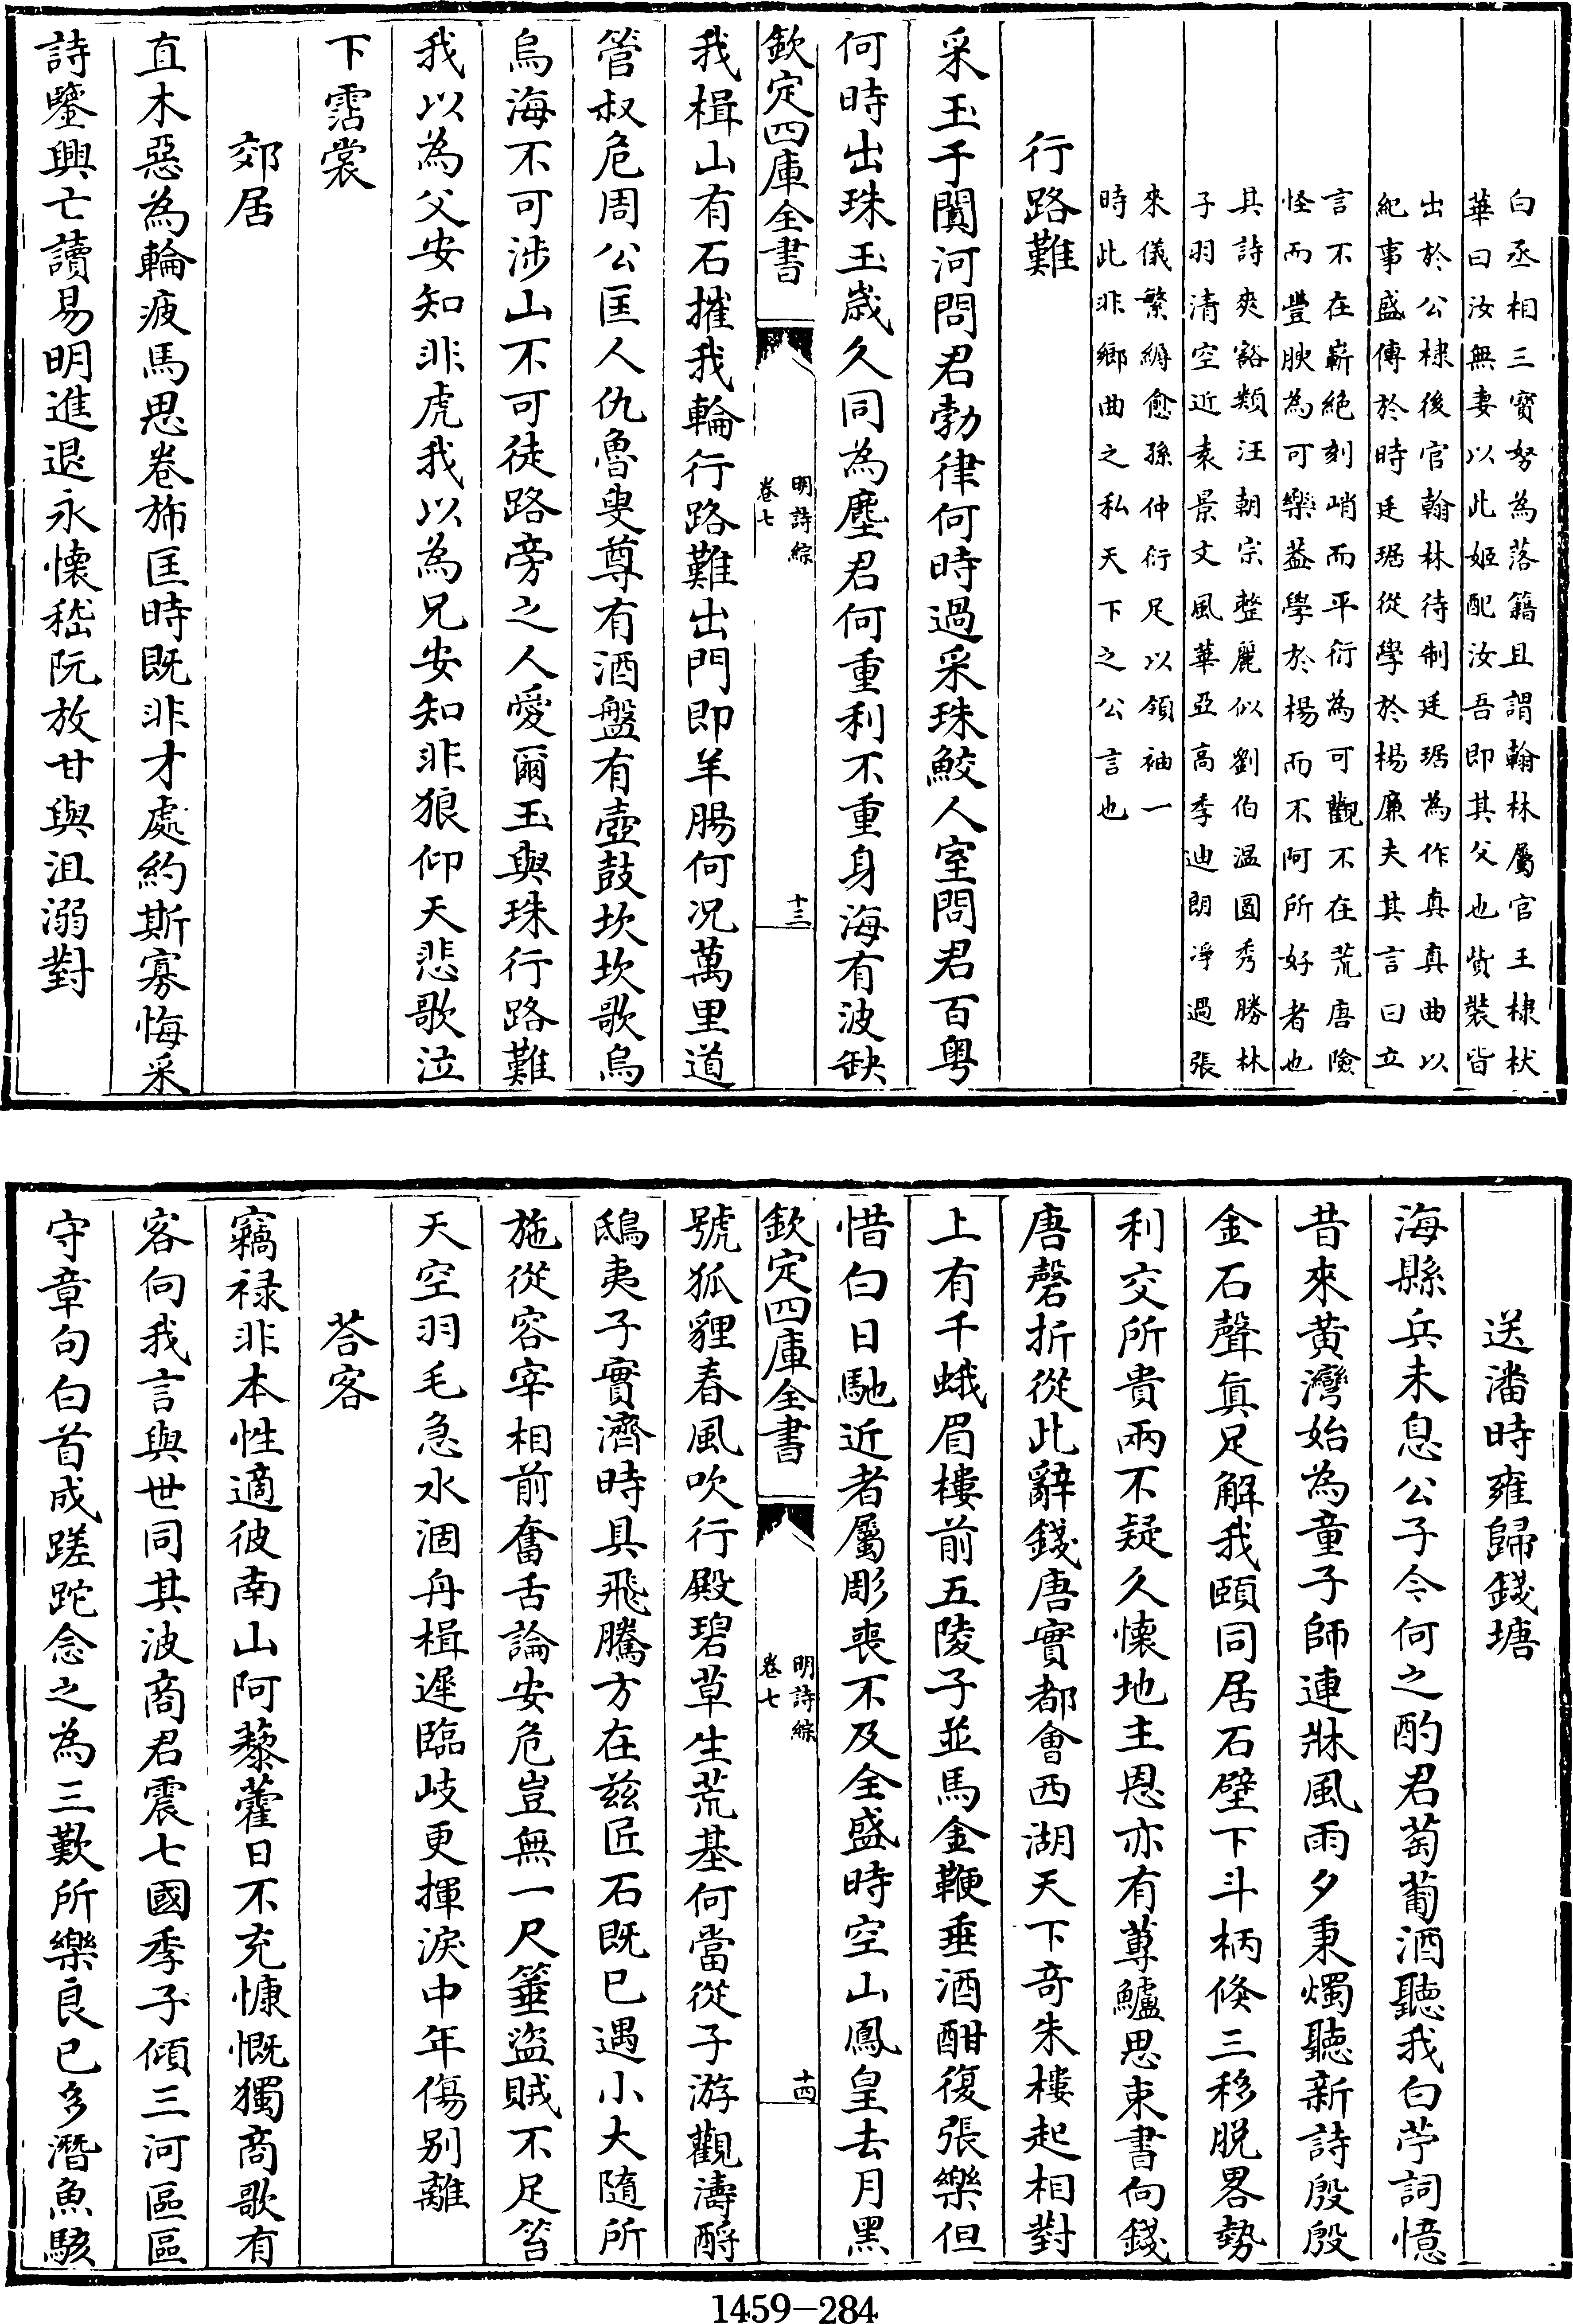 白丞相三寳努為落籍且謂翰林屬官王棣栿
華曰汝無妻以此姬配汝吾即其父也貲裝皆
出於公棣後官翰林待制廷琚為作真真曲以
紀事盛傳於時廷琚從學於楊廉夫其言曰立
言不在嶄絶刻峭而平衍為可觀不在荒唐險
怪而豐腴為可樂葢學於楊而不阿所好者也
其詩爽豁類汪朝宗整麗似劉伯温圓秀勝林
子羽清空近袁景文風華亞高季迪朗凈過張
來儀繁縟愈孫仲衍足以領袖一
時此非鄉曲之私天下之公言也
行路難
采玉于闐河問君勃律何時過采珠鮫人室問君百粤
何時出珠玉歳久同為塵君何重利不重身海有波缺
欽定四庫全書
明詩綜
卷七
十三
我楫山有石摧我輪行路難出門即羊腸何况萬里道
管叔危周公匡人仇魯叟尊有酒盤有壺鼓坎坎歌烏
烏海不可涉山不可徒路旁之人愛爾玉與珠行路難
我以為父安知非虎我以為兄安知非狼仰天悲歌泣
下霑裳
郊居
直木惡為輪疲馬思卷斾匡時既非才處約斯寡悔采
詩鑒興亡讀易明進退永懷嵇阮放甘與沮溺對
送潘時雍歸錢塘
海縣兵未息公子今何之酌君萄葡酒聽我白苧詞憶
昔來黄灣始為童子師連牀風雨夕秉燭聽新詩殷殷
金石聲真足解我頤同居石壁下斗柄倐三移脱畧勢
利交所貴兩不疑久懐地主恩亦有蓴鱸思束書向錢
唐磬折從此辭錢唐實都會西湖天下竒朱樓起相對
上有千蛾眉樓前五陵子並馬金鞭垂酒酣復張樂但
惜白日馳近者屬彫喪不及全盛時空山鳳皇去月黑
欽定四庫全書
明詩綜
卷七
十四
號狐貍春風吹行殿碧草生荒基何當從子游觀濤酹
鴟夷子實濟時具飛騰方在兹匠石既已遇小大隨所
施從容宰相前奮舌論安危豈無一尺箠盜賊不足笞
天空羽毛急水涸舟楫遲臨岐更揮淚中年傷别離
荅客
竊禄非本性適彼南山阿藜藿日不充慷慨獨商歌有
客向我言與世同其波商君震七國季子傾三河區區
守章句白首成蹉跎念之為三歎所樂良已多潛魚駭
1459—284